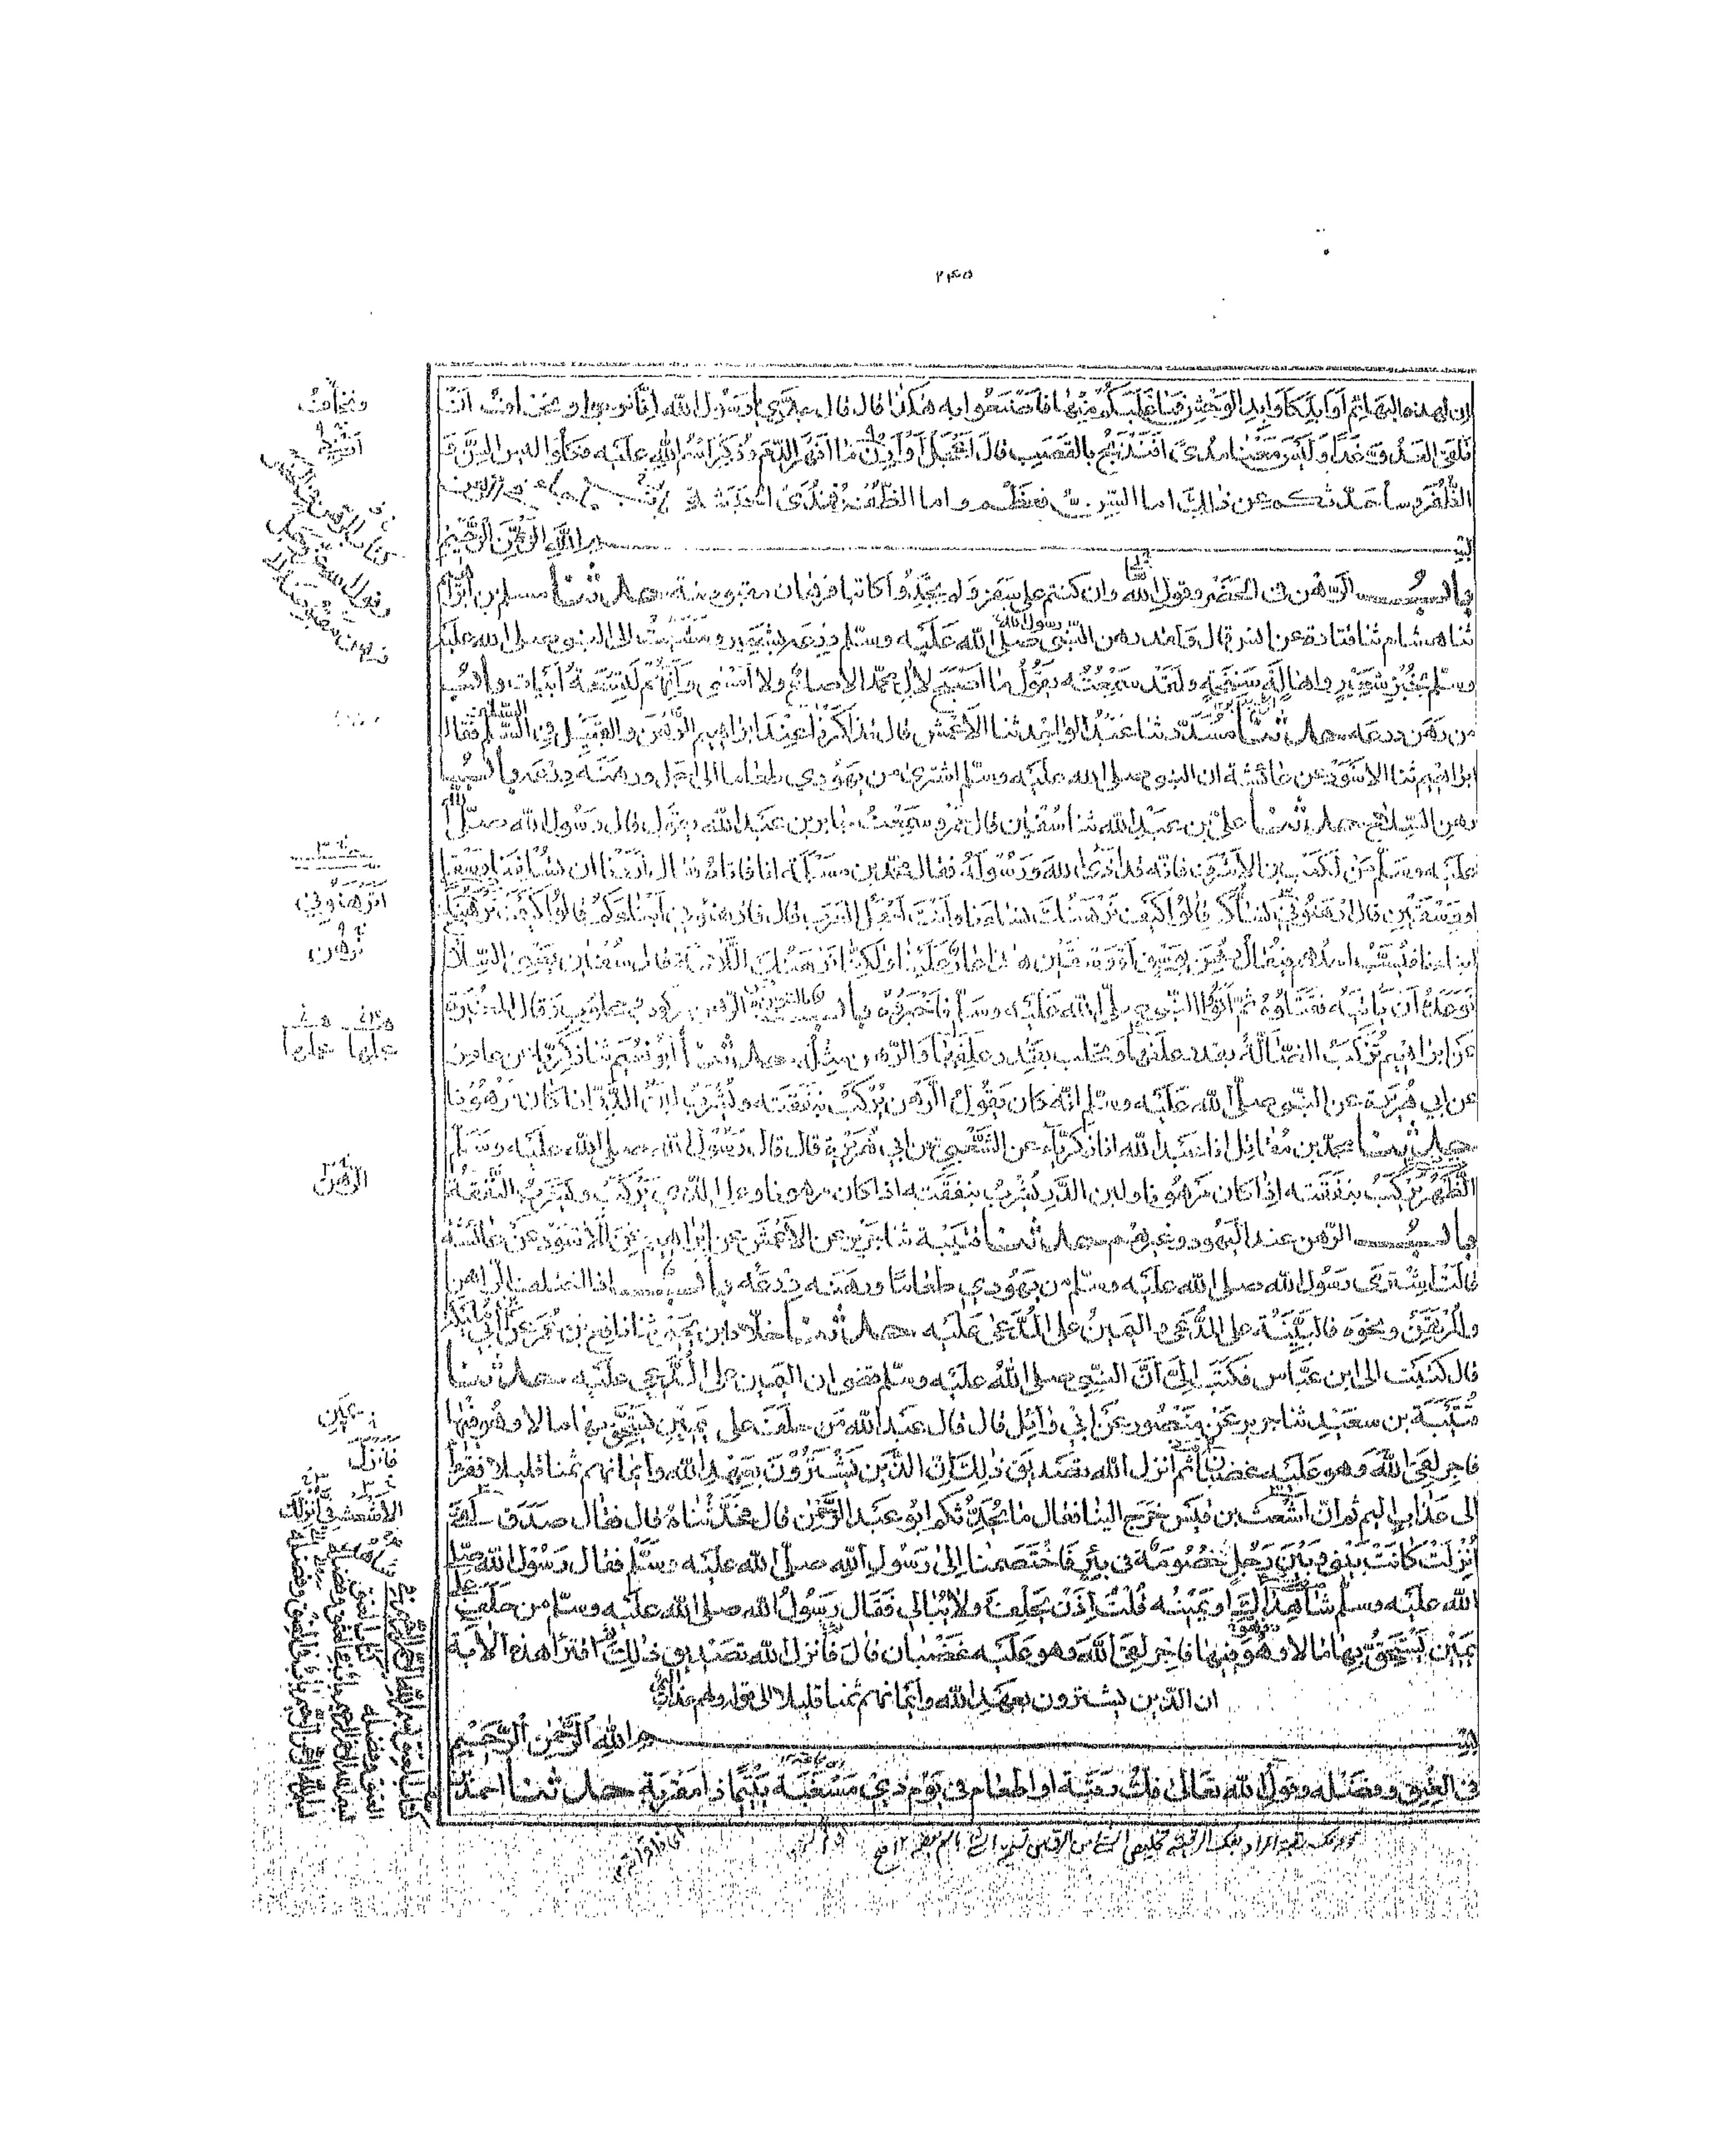 ۲۴۵
ان لهذه البهائم اوابد كاوابد الوحش فما غلبكم منها فاصنعوا به هكذا قال قال جدي يا رسول الله انا نرجوا ونخاف ان
نلقى العدو غدا وليس معنا مدى افنذبح بالقصب قال اعجل او ارن ما انهر الدم وذكر اسم الله عليه فكلوا ليس السن و
الظفر وسأحدثكم عن ذلك اما السن فعظم واما الظفر فمدى الحبشة
بسم الله الرحمن الرحيم
باب الرهن في الحضر وقول الله وان كنتم على سفر ولم تجدوا كاتبا فرهان مقبوضة حدثنا مسلم بن ابراهيم
ثنا هشام ثنا قتادة عن انس قال ولقد رهن النبي صلى الله عليه وسلم درعه بشعير ومشيت الى النبي صلى الله عليه
وسلم بخبز شعير واهالة سنخة ولقد سمعته يقول ما اصبح لال محمد الا صاع ولا امسى وانهم لتسعة ابيات باب
من رهن درعه حدثنا مسدد ثنا عبد الواحد ثنا الاعمش قال تذاكرنا عند ابراهيم الرهن والقبيل في السلف فقال
ابراهيم ثنا الاسود عن عائشة ان النبي صلى الله عليه وسلم اشترى من يهودي طعاما الى اجل ورهنه درعه باب
رهن السلاح حدثنا علي بن عبد الله ثنا سفيان قال عمرو سمعت جابر بن عبد الله يقول قال رسول الله صلى الله
عليه وسلم من لكعب بن الاشرف فانه قد اذى الله ورسوله فقال محمد بن مسلمة انا فاتاه فقال اردنا ان تسلفنا وسقا
او وسقين قال ارهنوني نساءكم قالوا كيف نرهنك نساءنا وانت اجمل العرب قال فارهنوني ابناءكم قالوا كيف نرهنك
ابناءنا فيسب احدهم فيقال رهن بوسق او وسقين هذا عار علينا ولكنا نرهنك اللامة قال سفيان يعني السلاح
فوعده ان ياتيه فقتلوه ثم اتوا النبي صلى الله عليه وسلم فاخبروه باب الرهن مركوب ومحلوب وقال المغيرة
عن ابراهيم تركب الضالة بقدر علفها وتحلب بقدر علفها والرهن مثله حدثنا ابو نعيم ثنا زكريا عن عامر
عن ابي هريرة عن النبي صلى الله عليه وسلم انه كان يقول الرهن يركب بنفقته ويشرب لبن الدر اذا كان مرهونا
حدثنا محمد بن مقاتل انا عبد الله انا زكرياء عن الشعبي عن ابي هريرة قال قال رسول الله صلى الله عليه وسلم
الظهر يركب بنفقته اذا كان مرهونا ولبن الدر يشرب بنفقته اذا كان مرهونا وعلى الذي يركب ويشرب النفقة
باب الرهن عند اليهود وغيرهم حدثنا قتيبة ثنا جرير عن الاعمش عن ابراهيم عن الاسود عن عائشة
قالت اشترى رسول الله صلى الله عليه وسلم من يهودي طعاما ورهنه درعه باب اذا اختلف الراهن
والمرتهن ونحوه فالبينة على المدعي واليمين على المدعى عليه حدثنا خلاد بن يحيى ثنا نافع بن عمر عن ابن ابي مليكة
قال كتبت الى ابن عباس فكتب الي ان النبي صلى الله عليه وسلم قضى ان اليمين على المدعى عليه حدثنا
قتيبة بن سعيد ثنا جرير عن منصور عن ابي وائل قال قال عبد الله من حلف على يمين يستحق بها مالا وهو فيها
فاجر لقي الله وهو عليه غضبان ثم انزل الله تصديق ذلك ان الذين يشترون بعهد الله وايمانهم ثمنا قليلا فقرأ
الى عذاب اليم ثم ان اشعث بن قيس خرج الينا فقال ما يحدثكم ابو عبد الرحمن قال فحدثناه قال فقال صدق لفي
انزلت كانت بيني وبين رجل خصومة في بئر فاختصمنا الى رسول الله صلى الله عليه وسلم فقال رسول الله صلى
الله عليه وسلم شاهداك او يمينه قلت اذن يحلف ولا يبالي فقال رسول الله صلى الله عليه وسلم من حلف على
يمين يستحق بها مالا وهو فيها فاجر لقي الله وهو عليه غضبان قال فانزل الله تصديق ذلك ثم اقترأ هذه الاية
ان الذين يشترون بعهد الله وايمانهم ثمنا قليلا الى قوله ولهم عذاب
بسم الله الرحمن الرحيم
في العتق وفضله وقول الله تعالى فك رقبة او اطعام في يوم ذي مسغبة يتيما ذا مقربة حدثنا احمد
ونخاف
اترهنوني
نرهن
علفها علفها
الرهن
يمين
فانزل